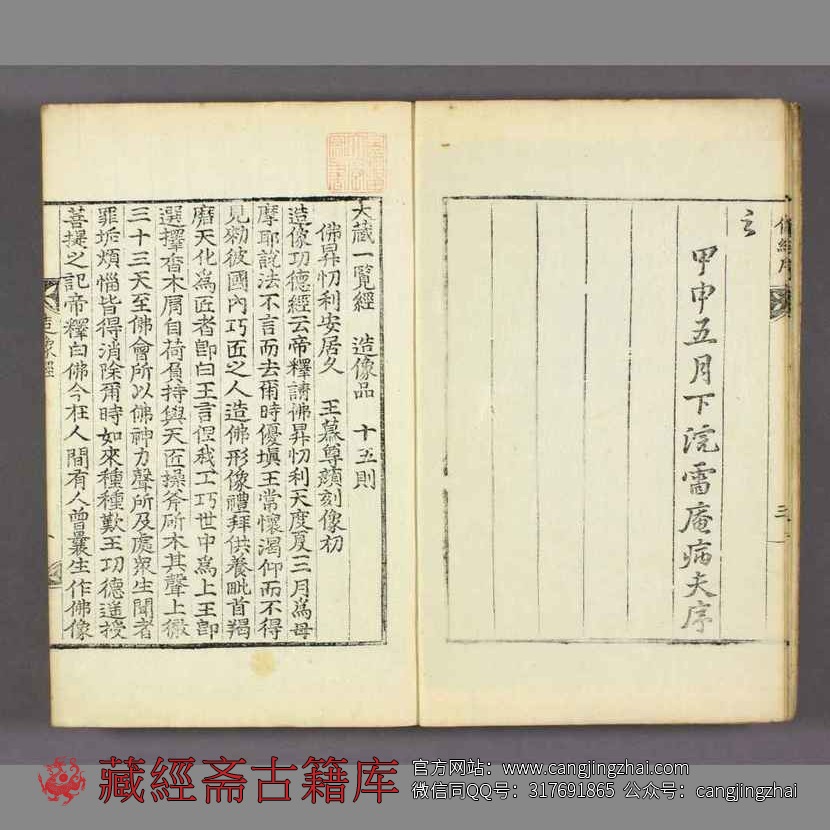 像經序
三
云
甲申五月下浣雷庵病夫序
大藏一覽經 造像品 十五則
佛昇忉利安居久 王慕尊顏刻像初
造像功德經云帝釋請佛昇忉利天度夏三月爲母
摩耶說法不言而去爾時優塡王常懷渴仰而不得
見勑彼國內巧匠之人造佛形像禮拜供養毗首羯
磨天化爲匠者卽白王言但我工巧世中爲上王卽
選擇香木肩自荷負持與天匠操斧斫木其聲上徹
三十三天至佛會所以佛神力聲所及處衆生聞者
罪垢煩惱皆得消除爾時如來種種歎王功德遙授
菩提之記帝釋白佛今在人間有人曾曩生作佛像
造像經
藏經斋古籍库
官方网站：www.cangjingzhai.com
微信同QQ号：317691865 公众号：cangjingzhai